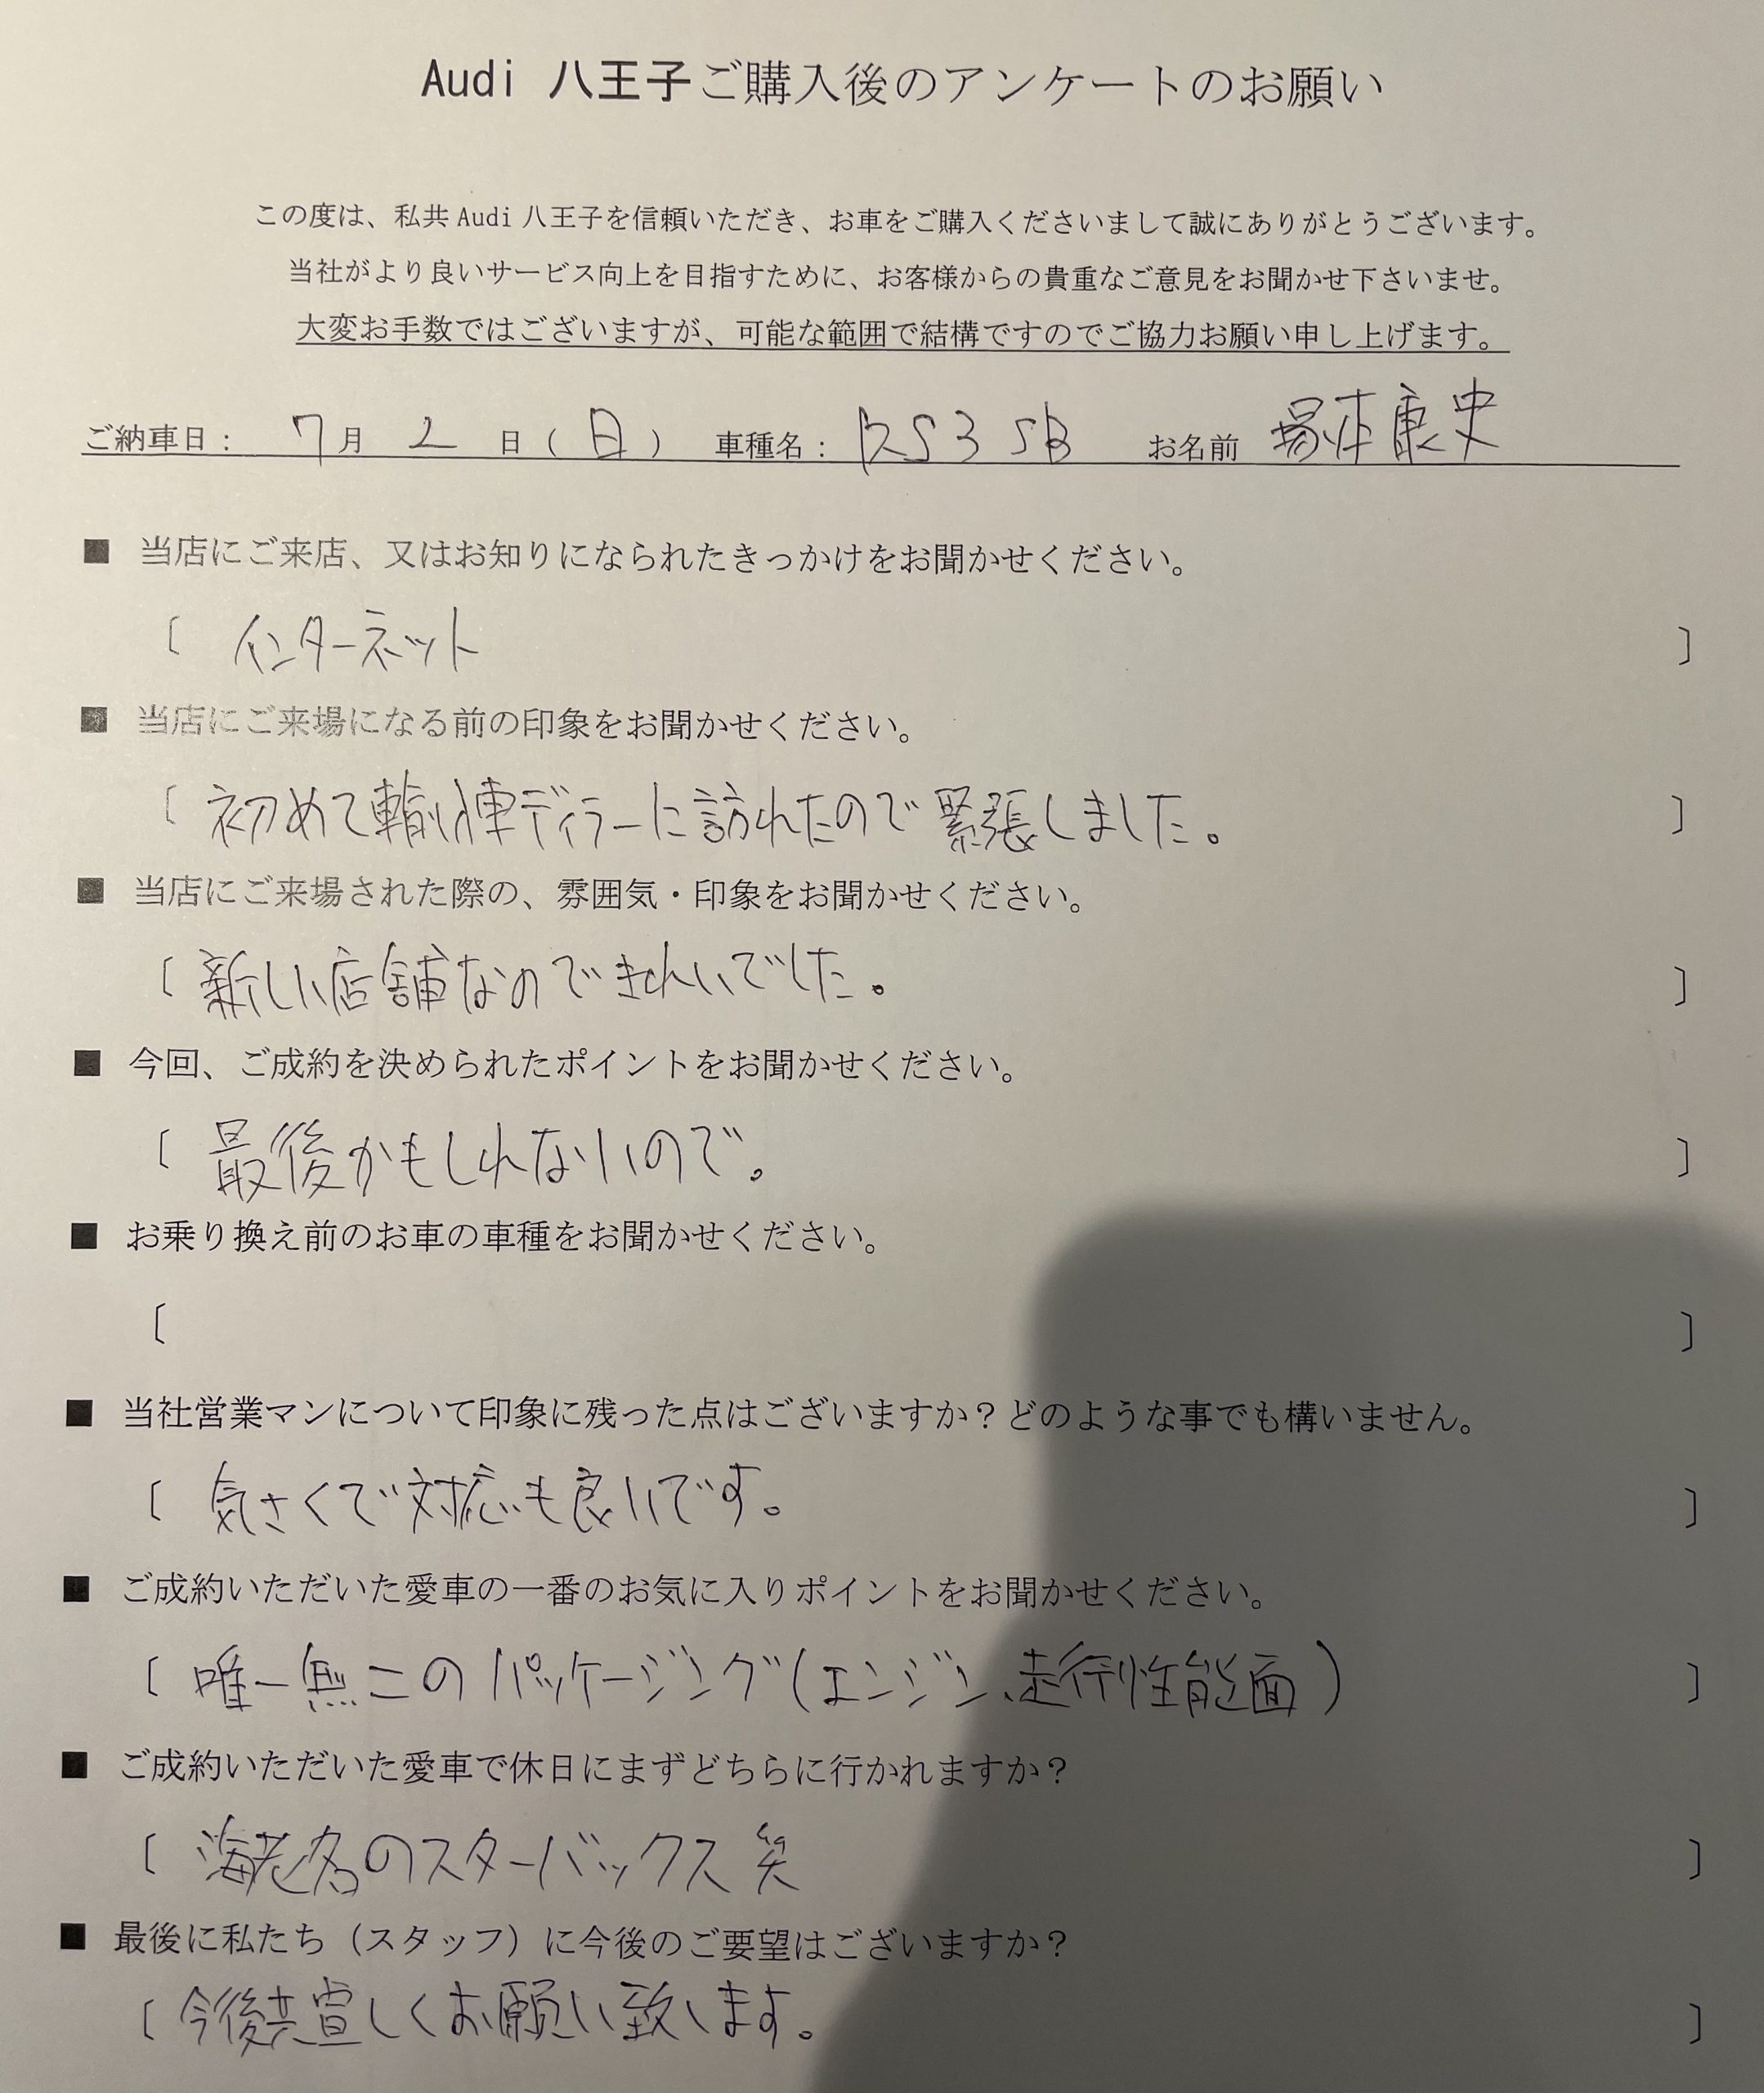 Audi 八王子ご購入後のアンケートのお願い
この度は、私共 Audi 八王子を信頼いただき、お車をご購入くださいまして誠にありがとうございます。
当社がより良いサービス向上を目指すために、お客様からの貴重なご意見をお聞かせ下さいませ。
大変お手数ではございますが、可能な範囲で結構ですのでご協力お願い申し上げます。
ご納車日： 7月 2 日（日） 車種名： RS3 SB お名前 塚本康史
■ 当店にご来店、又はお知りになられたきっかけをお聞かせください。
〔 インターネット 〕
■ 当店にご来場になる前の印象をお聞かせください。
〔 初めて輸入車ディラーに訪れたので緊張しました。 〕
■ 当店にご来場された際の、雰囲気・印象をお聞かせください。
〔 新しい店舗なのできれいでした。 〕
■ 今回、ご成約を決められたポイントをお聞かせください。
〔 最後かもしれないので。 〕
■ お乗り換え前のお車の車種をお聞かせください。
〔 〕
■ 当社営業マンについて印象に残った点はございますか？どのような事でも構いません。
〔 気さくで対応も良いです。 〕
■ ご成約いただいた愛車の一番のお気に入りポイントをお聞かせください。
〔 唯一無二のパッケージング（エンジン、走行性能面） 〕
■ ご成約いただいた愛車で休日にまずどちらに行かれますか？
〔 海老名のスターバックス 笑 〕
■ 最後に私たち（スタッフ）に今後のご要望はございますか？
〔 今後共宜しくお願い致します。 〕